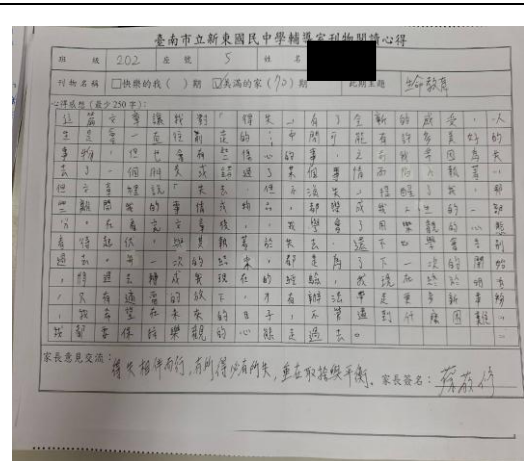 臺南市立新東國民中學輔導室刊物閱讀心得
班 級 202 座 號 5 姓 名
刊物名稱 □快樂的我( )期 ☑美滿的家(70)期 此期主題 生命教育
心得感想(最少250字):
這篇文章讓我對「得失」有了全新的感受,人
生是會一直往前走的,中間可能有許多美好的
事物,但也會有些傷心的事,
去了一個朋友或錯過了某個事情而陷入
但文章裡說「失去,但不消失」提醒了我,那
些離開我的事情或物品,都變成我人生的一部
分。在看完文章後,我學會了用樂觀的心態
看待起伏,與其執著於失去,還不如學會告別
過去,每一次的結束,都是為了下一次的開始
,將過去轉成我現在的經驗,
,只有適當的放下,才有辦法帶走更多新事物
,我希望在未來的日子,不管遇到什麼困難,
我都要保持樂觀的心態走過去。
家長意見交流:得失相伴而行,有所得必有所失,重在取捨與平衡。 家長簽名: